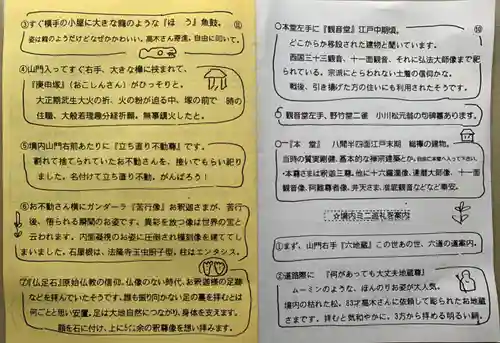 ③すぐ横手の小屋に大きな龍のような『ほう』魚鼓。
姿は龍のようだけどなぜかかわいい。高木さん寄進。自由に叩いて。
④山門入ってすぐ右手、大きな欅に挟まれて、
『庚申塚』(おこしんさん)がひっそりと。
大正期武生大火の折、火の粉が迫る中、塚の前で 時の
住職、大般若理趣分経祈願。無事鎮火したと。
⑤境内山門右前あたりに『立ち直り不動尊』です。
割れて捨てられていたお不動さんを、接いでもらい祀り
ました。名付けて立ち直り不動。がんばろう!
⑥お不動さん横にガンダーラ『苦行像』お釈迦さまが、苦行
後、悟られる瞬間のお姿です。異彩を放つ像は世界の宝と
云われます。内面凝視のお姿に圧倒され模刻像を建ててし
まいました。石屋根は、法隆寺玉虫厨子型、柱はエンタシス。
⑦『仏足石』原始仏教の信仰。仏像のない時代、お釈迦様の足跡
などを拝んでいたそうです。誰も振り向かない足の裏を拝むとは
何ごとと思い安置。足は大地自然につながり、身体を支えます。
額を石に付け、上に5㍍余の釈尊像を想い拝みます。
⑩
○本堂左手に『観音堂』江戸中期頃。
どこからか移設された建物と聞いています。
西国三十三観音、十一面観音、それに弘法大師像まで祀
られている。宗派にとらわれない土着の信仰かな。
戦後、引き揚げた方の住いにも利用されたそうです。
観音堂左手、野竹堂二雀 小川松元翁の句碑墓あります。
○一『本 堂』 八間半四面江戸末期 総欅の建物。
当時の質実剛健、基本的な禅宗建築とか。自由に本堂へ入って下さい。
・本尊さまは釈迦三尊。他に十六羅漢像、達磨大師像、十一面
観音像、阿難尊者像、弁天さま、准胝観音などなど奉安。
☆境内ミニ巡礼を案内
①まず、山門右手『六地蔵』この世あの世、六道の道案内。
②道路際に 『何があっても大丈夫地蔵尊』
ムーミンのような、ほんのりお姿が大人気。
境内の枯れた松。83才高木さんに依頼して彫られたお地蔵
さまです。拝むと気和やかに。3方から拝める明るい祠。